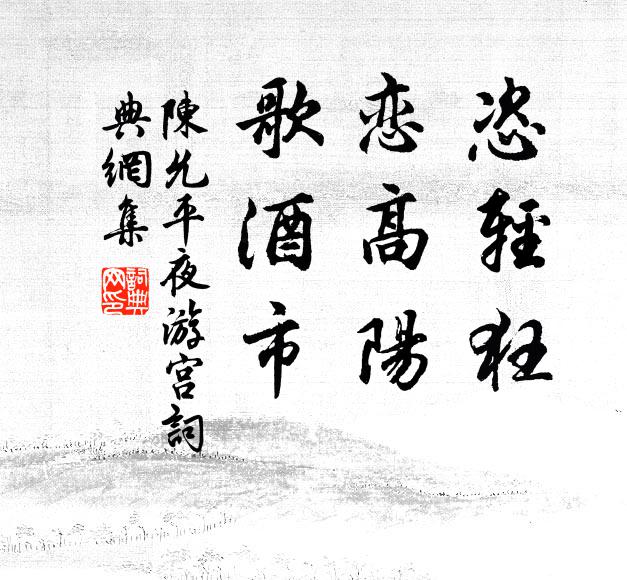 恣輕狂
戀高陽
歌酒市
陳允平夜游宮詞
典網集
詞典網印